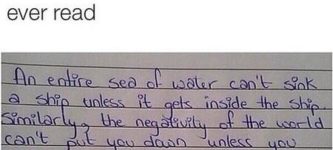 ever read
An entire sea of water can't sink
a ship unless it gets inside the ship.
Similarly, the negativity of the world
can't put you down unless you